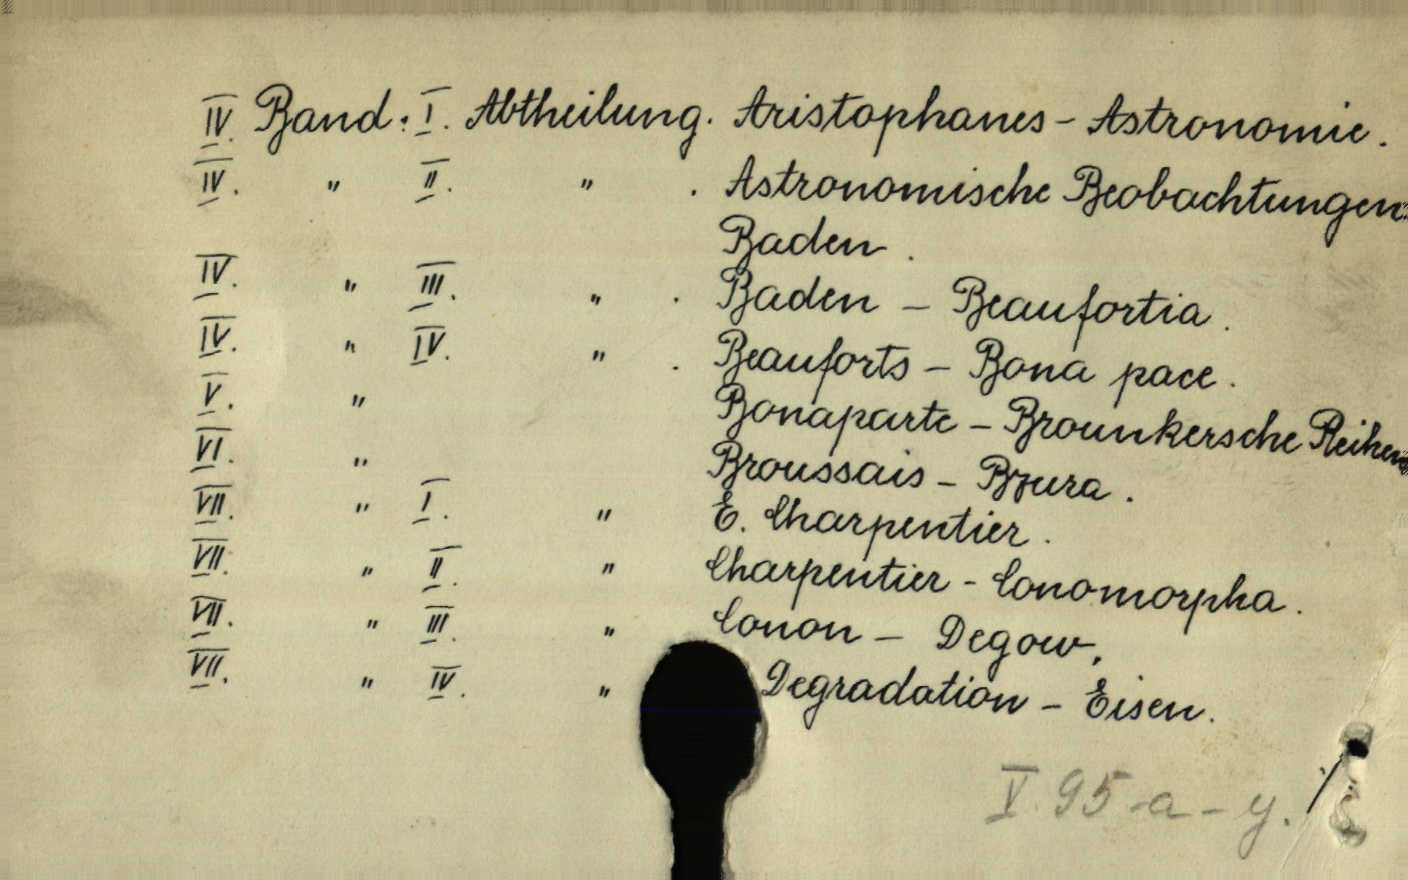 IV. Band. I. Abtheilung. Aristophanes - Astronomie.
IV. " II. " . Astronomische Beobachtungen
Baden.
IV. " III. " . Baden - Beaufortia.
IV. " IV. " . Beauforts - Bona pace.
V. " Bonaparte - Brounkersche Reihen
VI. " Broussais - Bzura.
VII. " I. " E. Charpentier.
VII. " II. " Charpentier - Conomorpha.
VII. " III. " Conon - Degow.
VII. " IV. " Degradation - Eisen.
V. 95-a-y.